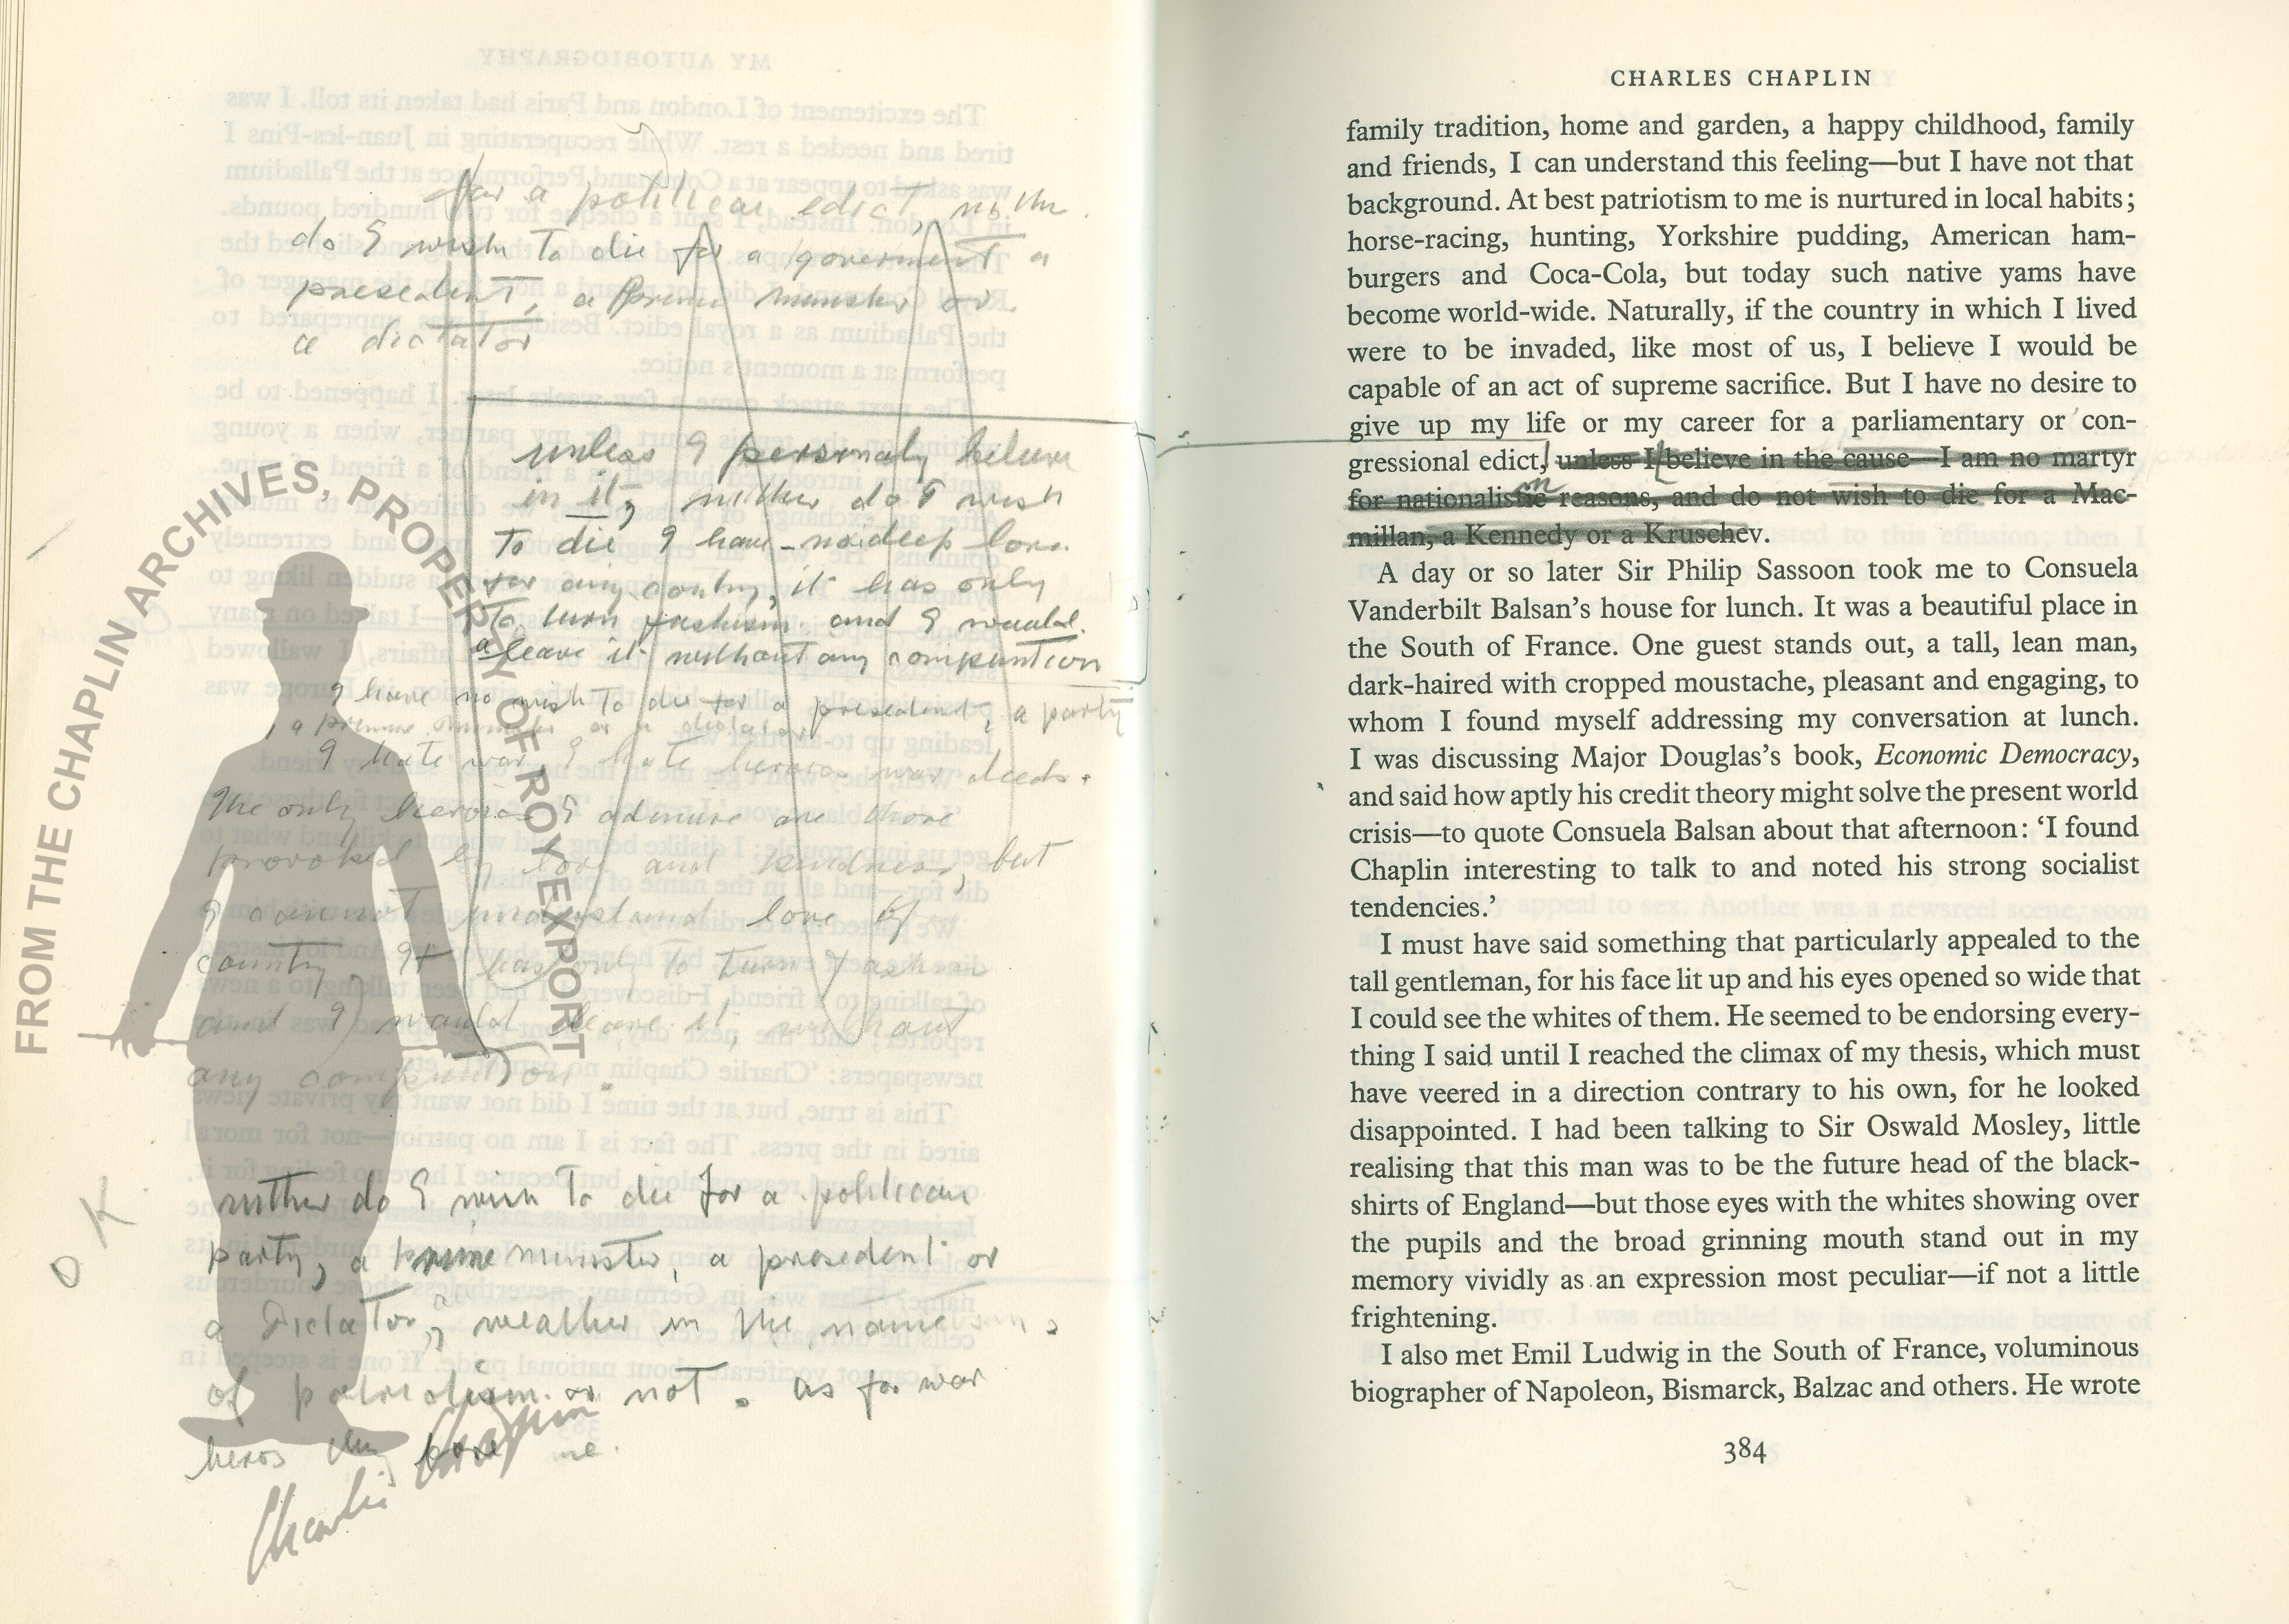 for a political edict, nither
do I wish to die for a goverment a
presedent, a Prime minister or
a dictator
unless I personaly believe
in it, nither do I wish
to die I have no deep love
for any contry, it has only
to turn fashism and I would
leave it without any compuntion
I have no wish to die for a presedent, a party
, a prime minister or a dictator
I hate war, I hate heroics war deeds.
The only heroics I admire are those
provoked by love and kindness, but
I cannot understand love of
country. It has only to turn fashism
and I would leave it without
any compuntion.
O K
nither do I wish to die for a politican
party, a prime minister, a presedent or
a Dictator, weather in the name
of patriotism or not. as for war
heros they bore me.
FROM THE CHAPLIN ARCHIVES, PROPERTY OF ROY EXPORT
Charlie Chaplin
CHARLES CHAPLIN
family tradition, home and garden, a happy childhood, family
and friends, I can understand this feeling—but I have not that
background. At best patriotism to me is nurtured in local habits;
horse-racing, hunting, Yorkshire pudding, American ham-
burgers and Coca-Cola, but today such native yams have
become world-wide. Naturally, if the country in which I lived
were to be invaded, like most of us, I believe I would be
capable of an act of supreme sacrifice. But I have no desire to
give up my life or my career for a parliamentary or con-
gressional edict, unless I believe in the cause—I am no martyr
for nationalistic reasons, and do not wish to die for a Mac-
millan, a Kennedy or a Kruschev.
A day or so later Sir Philip Sassoon took me to Consuela
Vanderbilt Balsan's house for lunch. It was a beautiful place in
the South of France. One guest stands out, a tall, lean man,
dark-haired with cropped moustache, pleasant and engaging, to
whom I found myself addressing my conversation at lunch.
I was discussing Major Douglas's book, Economic Democracy,
and said how aptly his credit theory might solve the present world
crisis—to quote Consuela Balsan about that afternoon: 'I found
Chaplin interesting to talk to and noted his strong socialist
tendencies.'
I must have said something that particularly appealed to the
tall gentleman, for his face lit up and his eyes opened so wide that
I could see the whites of them. He seemed to be endorsing every-
thing I said until I reached the climax of my thesis, which must
have veered in a direction contrary to his own, for he looked
disappointed. I had been talking to Sir Oswald Mosley, little
realising that this man was to be the future head of the black-
shirts of England—but those eyes with the whites showing over
the pupils and the broad grinning mouth stand out in my
memory vividly as an expression most peculiar—if not a little
frightening.
I also met Emil Ludwig in the South of France, voluminous
biographer of Napoleon, Bismarck, Balzac and others. He wrote
384